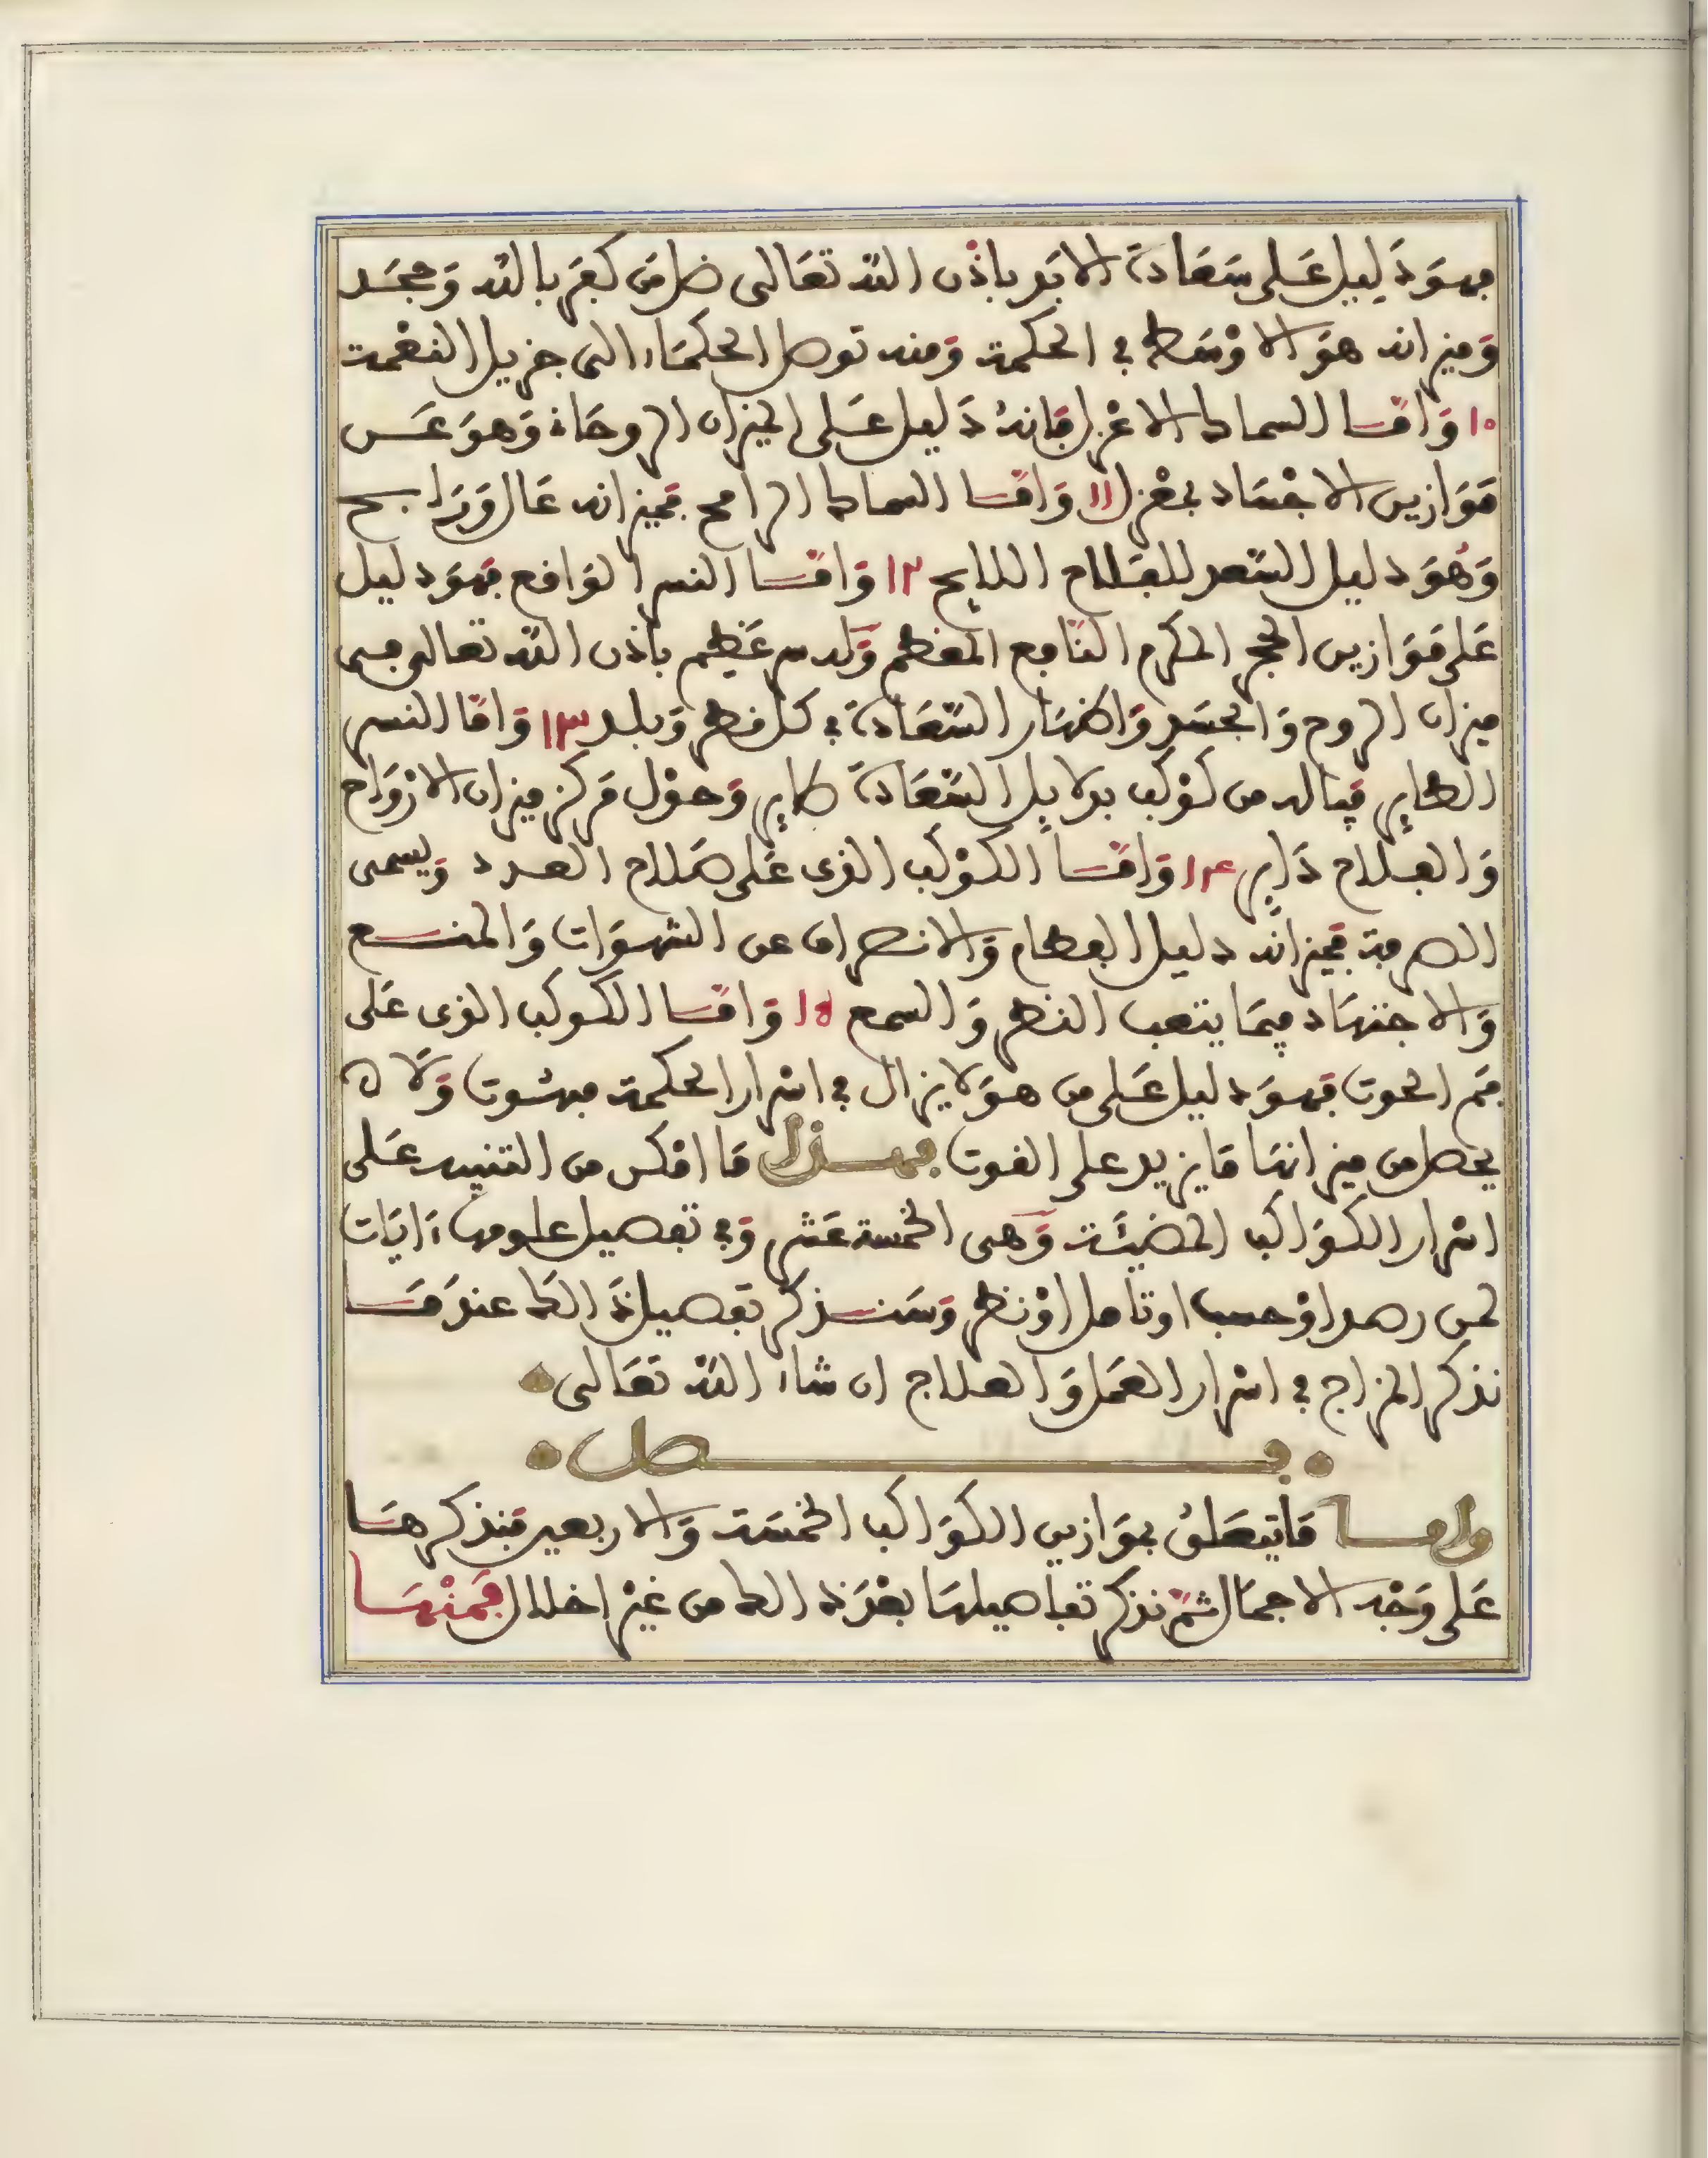 فهو دليل على سعادة الابد باذن الله تعالى ضل من كفر بالله وجحد
وميزانه هو الاوسط في الحكمة ومنه توصل الحكماء الى جزيل النعمة
١٠ واما السماك الاعزل فانه دليل على الميزان الروحاني وهو عن
موازين الاجساد بمعزل ١١ واما السماك الرامح فميزانه عال
وهو دليل السعد للفلاح اللايح ١٢ واما النسر الواقع فهو دليل
على موازين الحجر المكرم النافع المعظم وله سر عظيم باذن الله تعالى في
ميزان الروح والجسد واظهار السعادة في كل قطر وبلد ١٣ واما النسر
الطاير فياله من كوكب بدلايل السعادة طاير وحول مركز ميزان الارواح
والفلاح داير ١٤ واما الكوكب الذى على العدد ويسمى
الصرفة فميزانه دليل الفطام والانصراف عن الشهوات والمنع
والاجتهاد فيما يتعب النظر والسمع ١٥ واما الكوكب الذى على
فم الحوت فهو دليل على من هو لا يزال في اسرار الحكمة مبهوت ولا
يحصل من ميزانها ما يزيد على القوت فهذا ما امكن من التنبيه على
اسرار الكواكب المضيئة وهى الخمسة عشر وفي تفصيل علومها ءايات
لمن رصد او حسب او تامل او نظر وسنذكر تفصيل ذالك عند ما
نذكر المزاج في اسرار العمل والعلاج ان شاء الله تعالى
فصل
واما ما يتعلق بموازين الكواكب الخمسة والاربعين فنذكرها
على وجه الاجمال ثم نذكر تفاصيلها بعد ذالك من غير اخلال فمنها